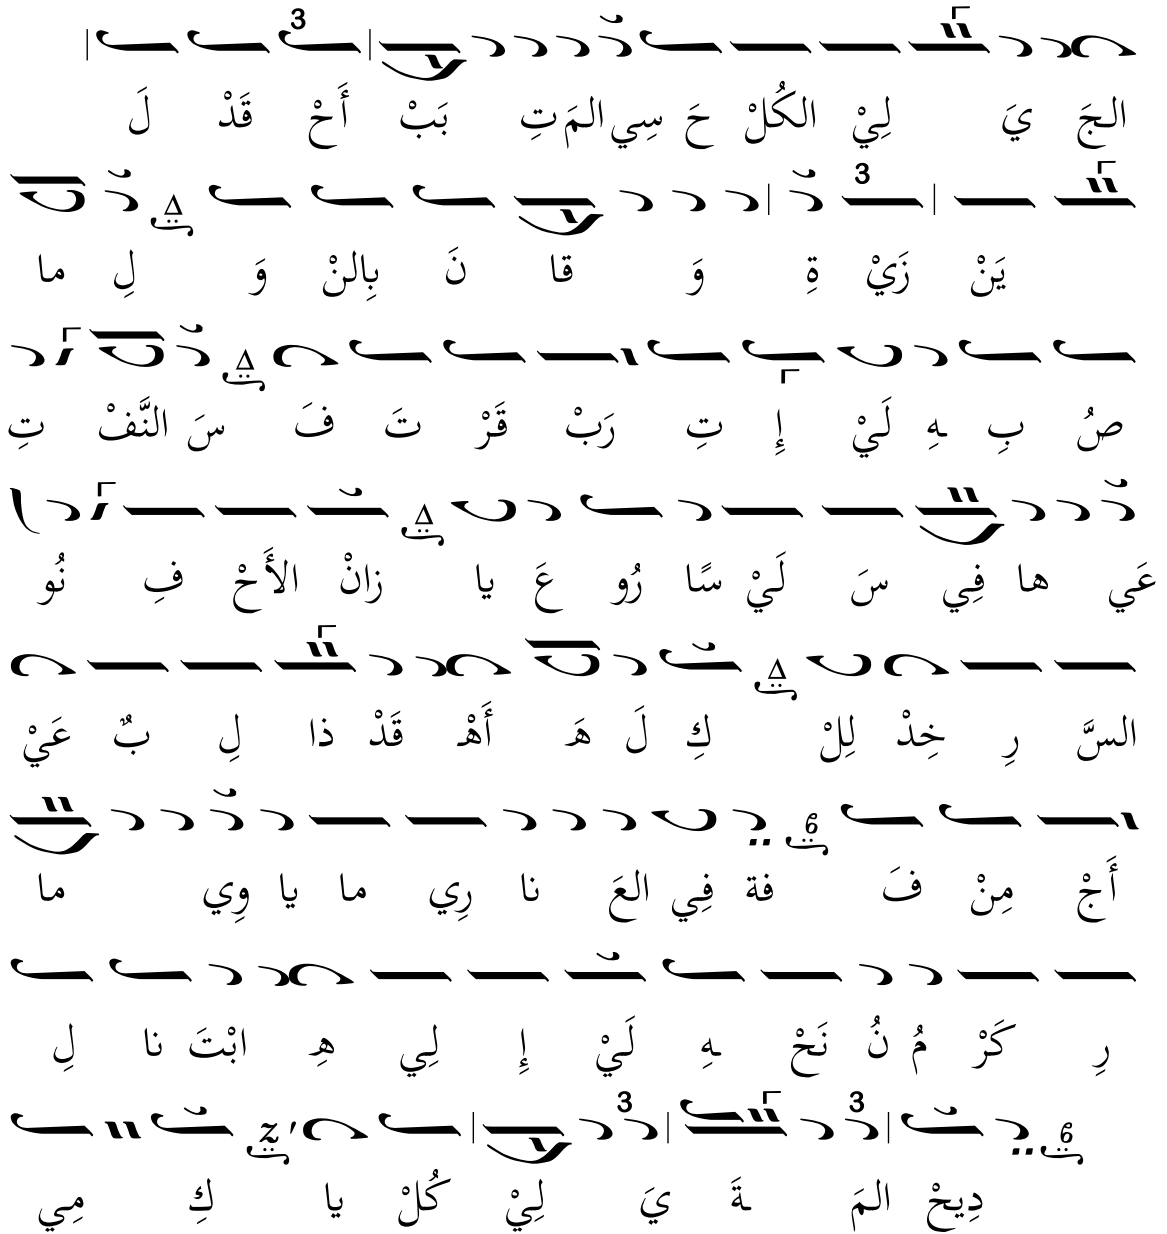 لَ قَدْ أَحْ بَبْ تِ المَ سِي حَ الكُلْ لِيْ يَ الجَ
ما لِ وَ بِالنْ نَ قا وَ ةِ زَيْ يَنْ
تِ النَّفْ سَ فَ تَ قَرْ رَبْ تِ إِ لَيْ ـهِ بِ صُ
نُو فِ الأَحْ زانْ يا عَ رُو سًا لَيْ سَ فِي ها عَي
عَيْ بٌ لِ ذا قَدْ أَهْـ هَـ لَ كِ لِلْ خِدْ رِ السَّ
ما وِي يا ما رِي نا العَ فِي فة فَ مِنْ أَجْ
لِ نا ابْتَ هِـ لِي إِ لَيْ ـهِ نَحْ نُ مُ كَرْ رِ
مِي كِ يا كُلْ لِيْ يَ ـةَ المَ دِيحْ